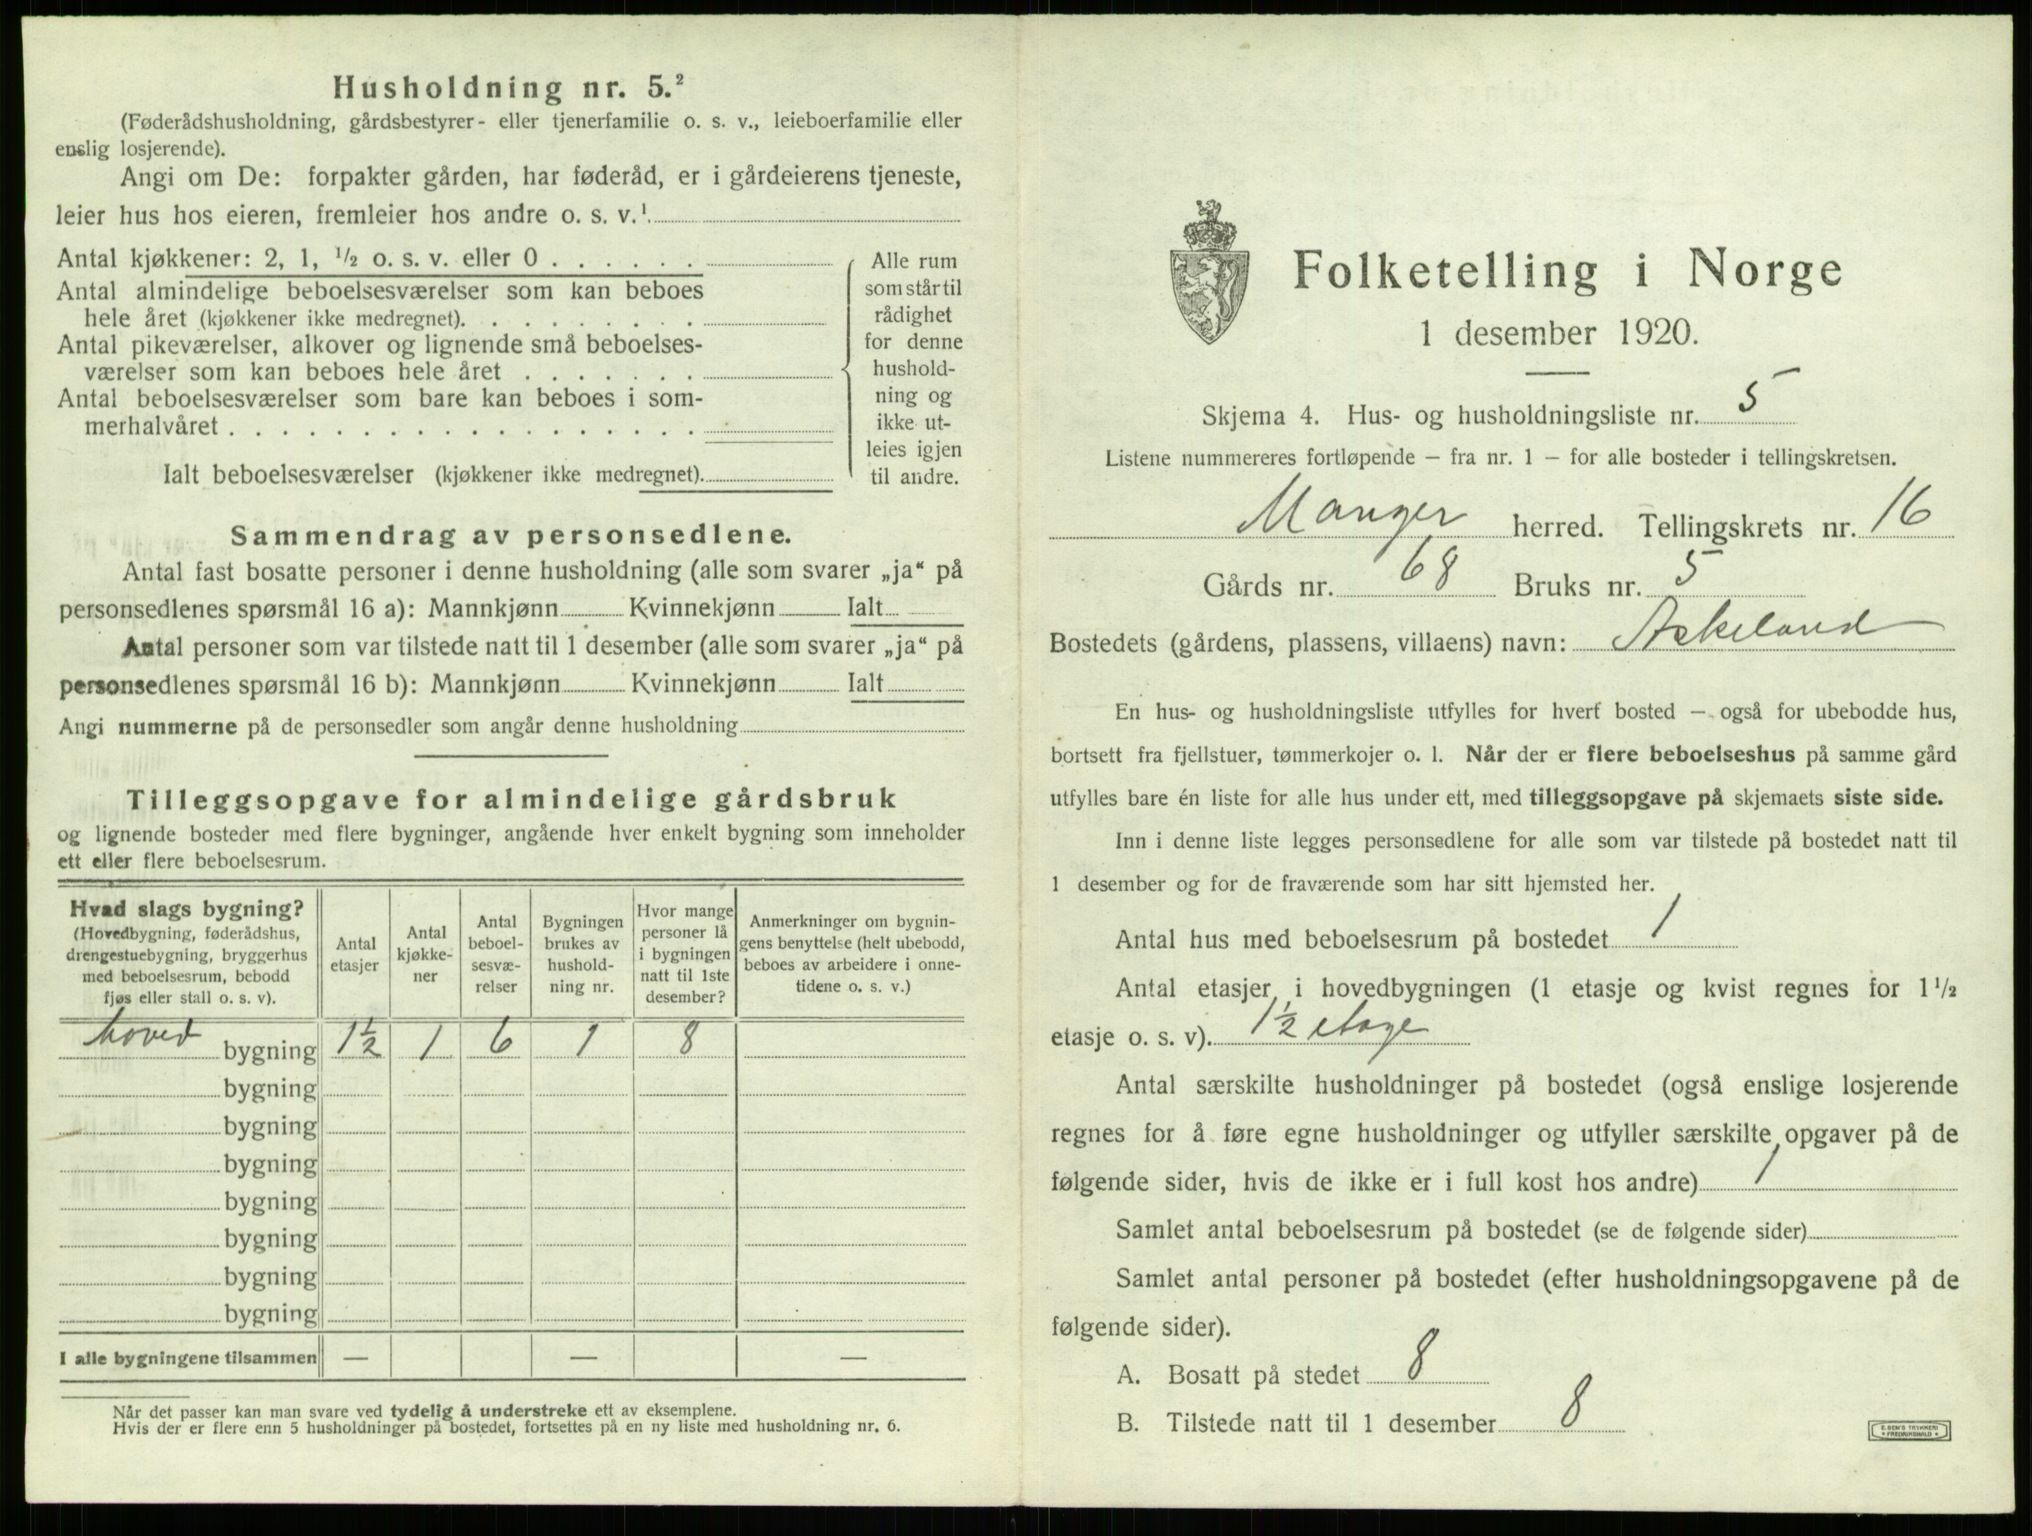 Husholdning nr. 5.²
(Føderådshusholdning, gårdsbestyrer- eller tjenerfamilie o. s. v., leieboerfamilie eller
enslig losjerende).
Angi om De: forpakter gården, har føderåd, er i gårdeierens tjeneste,
leier hus hos eieren, fremleier hos andre o. s. v.¹
Antal kjøkkener: 2, 1, ½ o. s. v. eller 0 . . . . . .
Antal almindelige beboelsesværelser som kan beboes
hele året (kjøkkener ikke medregnet). . . . . . . . .
Antal pikeværelser, alkover og lignende små beboelses-
værelser som kan beboes hele året . . . . . . .
Antal beboelsesværelser som bare kan beboes i som-
merhalvåret . . . . . . . . . . . . . . . . . .
Ialt beboelsesværelser (kjøkkener ikke medregnet).
Alle rum
som står til
rådighet
for denne
hushold-
ning og
ikke ut-
leies igjen
til andre.
Sammendrag av personsedlene.
Antal fast bosatte personer i denne husholdning (alle som svarer „ja“ på
personsedlenes spørsmål 16 a): Mannkjønn Kvinnekjønn Ialt
Antal personer som var tilstede natt til 1 desember (alle som svarer „ja“ på
personsedlenes spørsmål 16 b): Mannkjønn Kvinnekjønn Ialt
Angi nummerne på de personsedler som angår denne husholdning
Tilleggsopgave for almindelige gårdsbruk
og lignende bosteder med flere bygninger, angående hver enkelt bygning som inneholder
ett eller flere beboelsesrum.
Hvad slags bygning?
(Hovedbygning, føderådshus,
drengestuebygning, bryggerhus
med beboelsesrum, bebodd
fjøs eller stall o. s. v).
Antal
etasjer
Antal
kjøkke-
ner
Antal
beboel-
sesvæ-
relser
Bygningen
brukes av
hushold-
ning nr.
Hvor mange
personer lå
i bygningen
natt til 1ste
desember?
Anmerkninger om bygnin-
gens benyttelse (helt ubebodd,
beboes av arbeidere i onne-
tidene o. s. v.)
hoved bygning 1½ 1 6 1 8
bygning
bygning
bygning
bygning
bygning
bygning
bygning
I alle bygningene tilsammen — — —
Når det passer kan man svare ved tydelig å understreke ett av eksemplene.
Hvis der er flere enn 5 husholdninger på bostedet, fortsettes på en ny liste med husholdning nr. 6.
Folketelling i Norge
1 desember 1920.
Skjema 4. Hus- og husholdningsliste nr. 5
Listene nummereres fortløpende – fra nr. 1 – for alle bosteder i tellingskretsen.
Manger herred. Tellingskrets nr. 16
Gårds nr. 68 Bruks nr. 5
Bostedets (gårdens, plassens, villaens) navn: Askeland
En hus- og husholdningsliste utfylles for hvert bosted – også for ubebodde hus,
bortsett fra fjellstuer, tømmerkojer o. l. Når der er flere beboelseshus på samme gård
utfylles bare én liste for alle hus under ett, med tilleggsopgave på skjemaets siste side.
Inn i denne liste legges personsedlene for alle som var tilstede på bostedet natt til
1 desember og for de fraværende som har sitt hjemsted her.
Antal hus med beboelsesrum på bostedet 1
Antal etasjer i hovedbygningen (1 etasje og kvist regnes for 1½
etasje o. s. v). 1½ etage
Antal særskilte husholdninger på bostedet (også enslige losjerende
regnes for å føre egne husholdninger og utfyller særskilte opgaver på de
følgende sider, hvis de ikke er i full kost hos andre) 1
Samlet antal beboelsesrum på bostedet (se de følgende sider)
Samlet antal personer på bostedet (efter husholdningsopgavene på de
følgende sider).
A. Bosatt på stedet 8
B. Tilstede natt til 1 desember 8
E. SEM'S TRYKKERI
FREDRIKSHALD